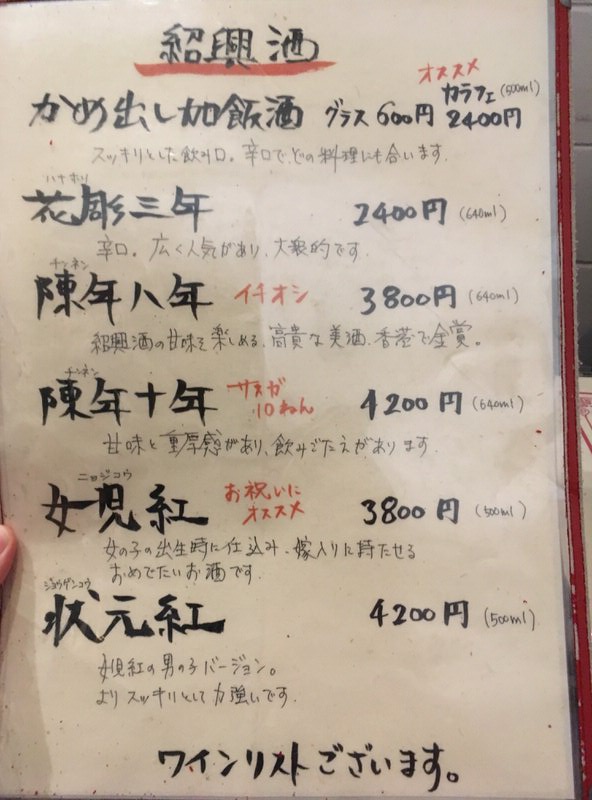 紹興酒
オススメ
カラフェ(500ml)
かめ出し加飯酒 グラス 600円 2400円
スッキリとした飲み口。辛口で、どの料理にも合います.
ハナホリ
花彫三年 2400円 (640ml)
辛口。広く人気があり、大衆的です.
チンネン
陳年八年 イチオシ 3800円 (640ml)
紹興酒の甘味を楽しめる、高貴な美酒、香港で金賞。
チンネン
陳年十年 サスガ 10ねん 4200円 (640ml)
甘味と重厚感があり、飲みごたえがあります.
ニョジコウ
女児紅 お祝いにオススメ 3800円 (500ml)
女の子の出生時に仕込み、嫁入りに持たせる
おめでたいお酒です.
ジョウゲンコウ
状元紅 4200円 (500ml)
女児紅の男の子バージョン。
よりスッキリとして力強いです.
ワインリストございます。